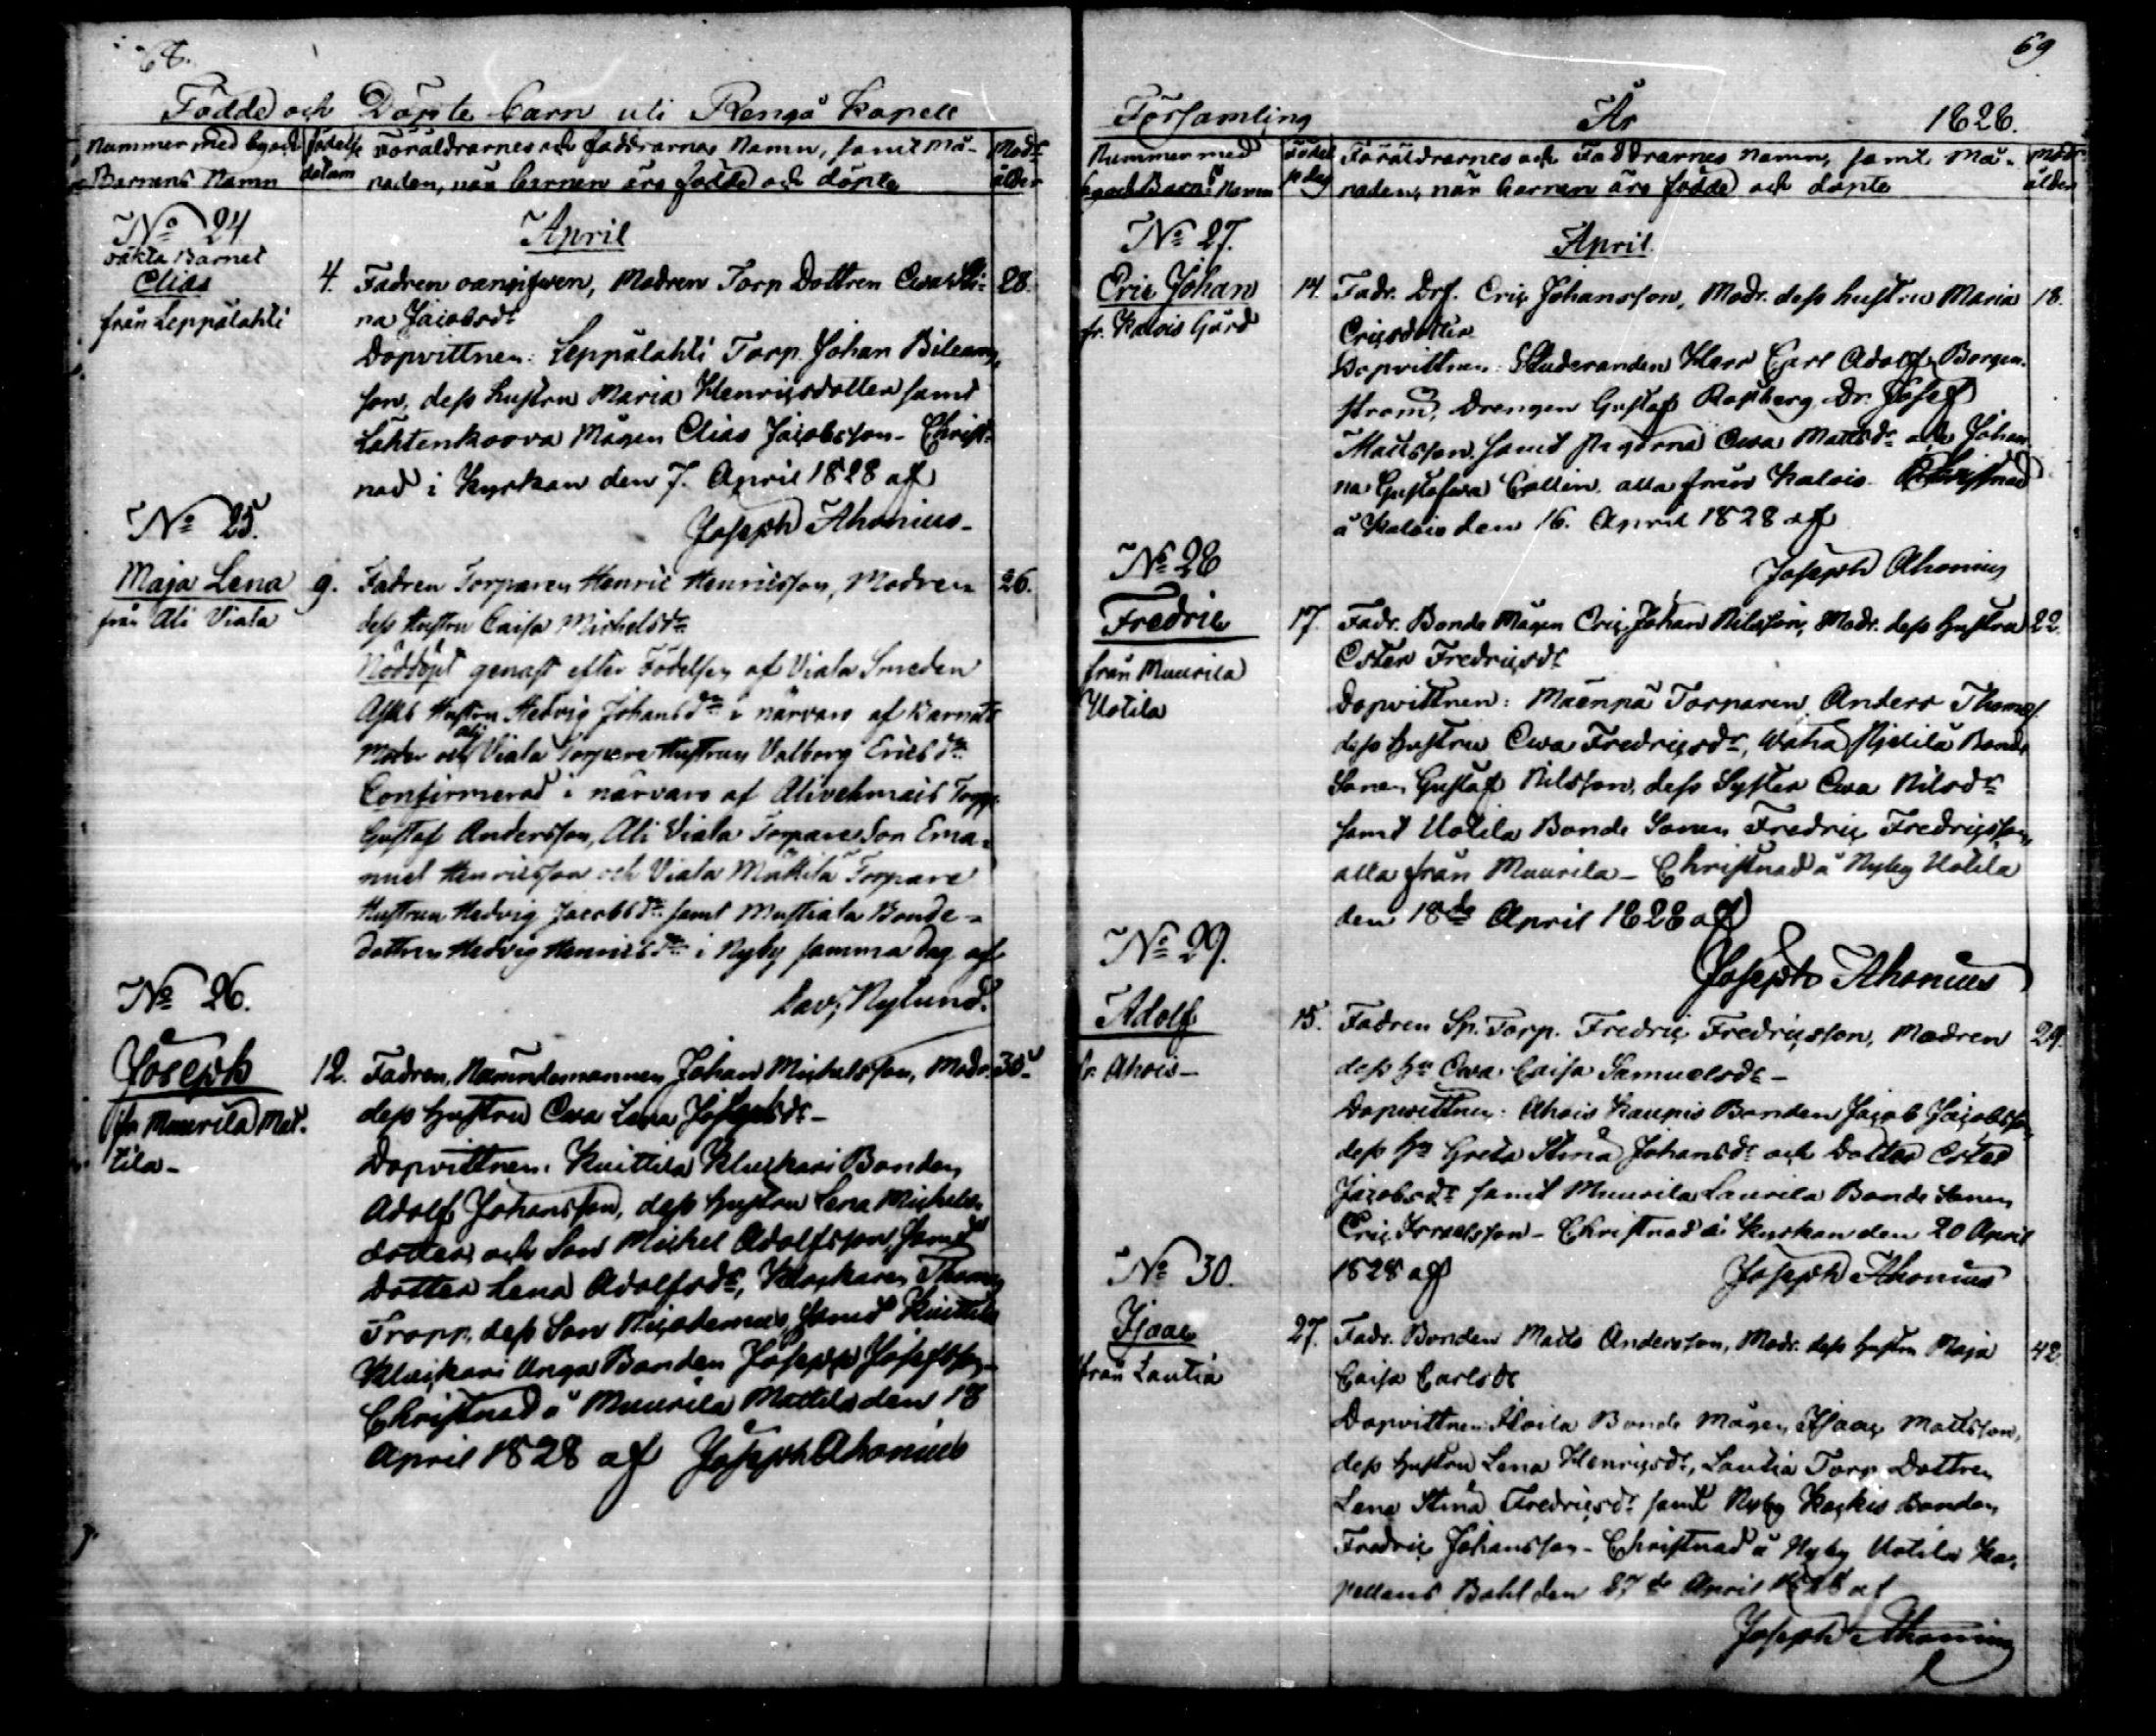 68.
Födde och Döpte barn uti Rengo Kapell
Nummer med bya och
Barnens Namn
Födelse
datum
Föräldrarnes och faddrarnas Namn, samt Må-
naden, när barnen äro födde och döpte
Modr
ålder
April
No 24
oäkta Barnet
Elias
från Leppälahti
4. Fadren oangifwen, Modren Torp Dottren Ewa Sti- 28.
na Jacobsdr
Dopvittnen: Leppälahti Torp. Johan
son, dess hustru Maria Henricsdotter samt
Mågen Elias Jacobsson - Christ-
nad i Kyrkan den 7. April 1828 af
Joseph Ahonius -
No 25.
Maja Lena
från Ali Viala
9. Fadren Torparen Henric Henricsson, Modren 26.
dess Hustru Caisa Michelsdr
Nöddöpt genast efter Födelsen af Viala Smeden
Hustru Hedvig Johansdr i närvaro af Barnets
Moder och Ali Viala Torpare Hustrun Valborg Ericsdr
Confirmerad i närvaro af Alivehmais Torp.
Gustaf Andersson, Ali Viala Torpare Son Ema-
nuel Henricsson och Viala Mäkilä Torpare
Hustrun Hedvig Jacobsdr samt Mustiala Bonde-
dottren Hedvig Henricsdr i Nyby samma dag af
Dav; Nylund.
No 26.
Joseph
fr Muurila Mat-
tila -
12. Fadren, Nämndemannen Johan Michelsson, Modr. 30
dess Hustru Ewa Lena Josephsdr -
Dopvittnen: Kuittila Bonden
Adolf Johansson, dess hustru Lena Michels-
dotter och Son Michel Adolfsson, samt
Dotter Lena Adolfsdr, Klockaren Thomas
Tropp, dess Son Nicodemus, samt Kuittila
unga Bonden Joseph Josephsson -
Christnad å Muurila Mattila den 18
April 1828 af Joseph Ahonius
69
Församling År 1828.
Nummer med
bya och Barns Namn
Födel
se dag
Föräldrarnes och Faddrarnes Namn, samt Må-
naden, när barnen äro födde och döpte
Modr
ålder
April.
No 27.
Eric Johan
fr. Kalois Gård
14. Fadr. Drg. Eric Johansson, Modr. dess hustru Maria 18.
Ericsdotter
Dopvittnen: Studeranden Herr Carl Adolf Borgen-
ström, Drengen Gustaf Rosberg, Dr. Josef
Mattsson, samt pigorna Ewa Mattsdr och Johan-
na Gustafwa Collin, alla från Kalois Christnad
å Kalois den 16. April 1828 af
Joseph Ahonius
No 28
Fredric
från Muurila
Uotila
17. Fadr. Bonde Mågen Eric Johan Nilsson, Modr. dess hustru 22.
Ester Fredricsdr
Dopvittnen: Mäenpä Torparen Anders Thomas.
dess hustru Ewa Fredricsdr, Bonde
Sonen Gustaf Nilsson, dess Syster Ewa Nilsdr
samt Uotila Bonde Sonen Fredric Fredricsson,
alla från Muurila - Christnad å Nyby Uotila
den 18de April 1828 af
Joseph Ahonius
No 29.
Adolf
fr. Ahois -
15. Fadren Sp. Torp. Fredric Fredricsson, Modren 29.
dess hu Ewa Caisa Samuelsdr -
Dopvittnen: Ahois Kaupis Bonden Jacob Jacobsson
dess hu Greta Stina Johansdr och Dotter Ester
Jacobsdr samt Muurila Laurila Bonde Sonen
Eric Israelsson - Christnad å Kyrkan den 20 April
1828 af Joseph Ahonius
No 30.
Isaac
från Lautia
27. Fadr. Bonden Matts Andersson, Modr. dess hustru Maja 42
Caisa Carlsdr
Dopvittnen: Bonde Mågen Isaac Mattsson,
dess hustru Lena Henricsdr, Lautia Torp Dottren
Lena Stina Fredricsdr samt Nyby Bonden
Fredric Johansson - Christnad å Nyby Uotila Ka-
pellans Bohl den 27de April 1828 af
Joseph Ahonius